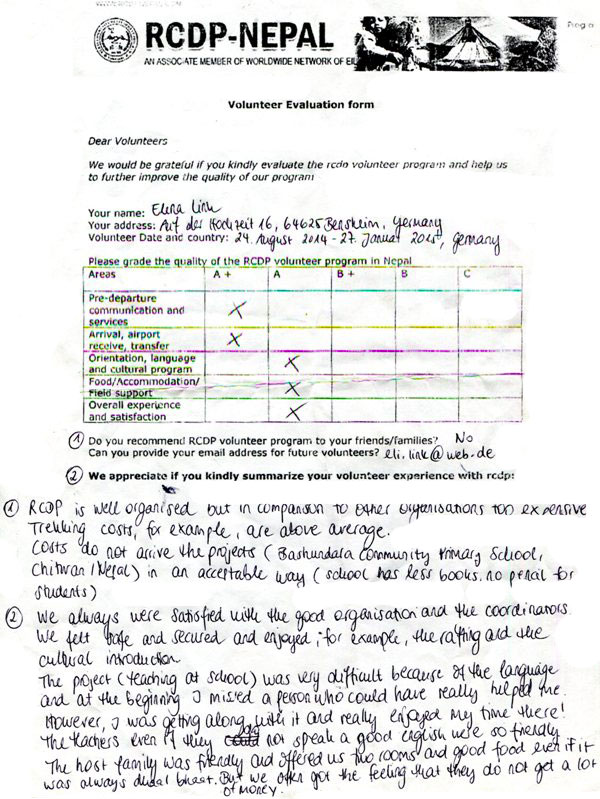 RCDP-NEPAL
AN ASSOCIATE MEMBER OF WORLDWIDE NETWORK OF EIL
Prog a
Volunteer Evaluation form
Dear Volunteers
We would be grateful if you kindly evaluate the rcdp volunteer program and help us
to further improve the quality of our program
Your name: Elena Link
Your address: Auf der Hochzeit 16, 64625 Bensheim, Germany
Volunteer Date and country: 24. August 2014 - 27. Januar 2015, Germany
Please grade the quality of the RCDP volunteer program in Nepal
Areas A + A B + B C
Pre-departure
communication and
services X
Arrival, airport
receive, transfer X
Orientation, language
and cultural program X
Food/Accommodation/
Field support X
Overall experience
and satisfaction X
① Do you recommend RCDP volunteer program to your friends/families? No
Can you provide your email address for future volunteers? eli.link@web.de
② We appreciate if you kindly summarize your volunteer experience with rcdp:
① RCDP is well organised but in comparison to other organisations too expensive
Trekking costs, for example, are above average.
Costs do not arrive the projects (Bashundara Community Primary School,
Chitwan/Nepal) in an acceptable way (school has less books, no pencil for
students)
② We always were satisfied with the good organisation and the coordinators.
We felt safe and secured and enjoyed, for example, the rafting and the
cultural introduction
The project (teaching at school) was very difficult because of the language
and at the beginning I missed a person who could have really helped me.
However, I was getting along with it and really enjoyed my time there!
The teachers even if they could not speak a good english were so friendly
The host family was friendly and offered us two rooms and good food even if it
was always dhdal bhaat. But we often got the feeling that they do not get a lot
of money.